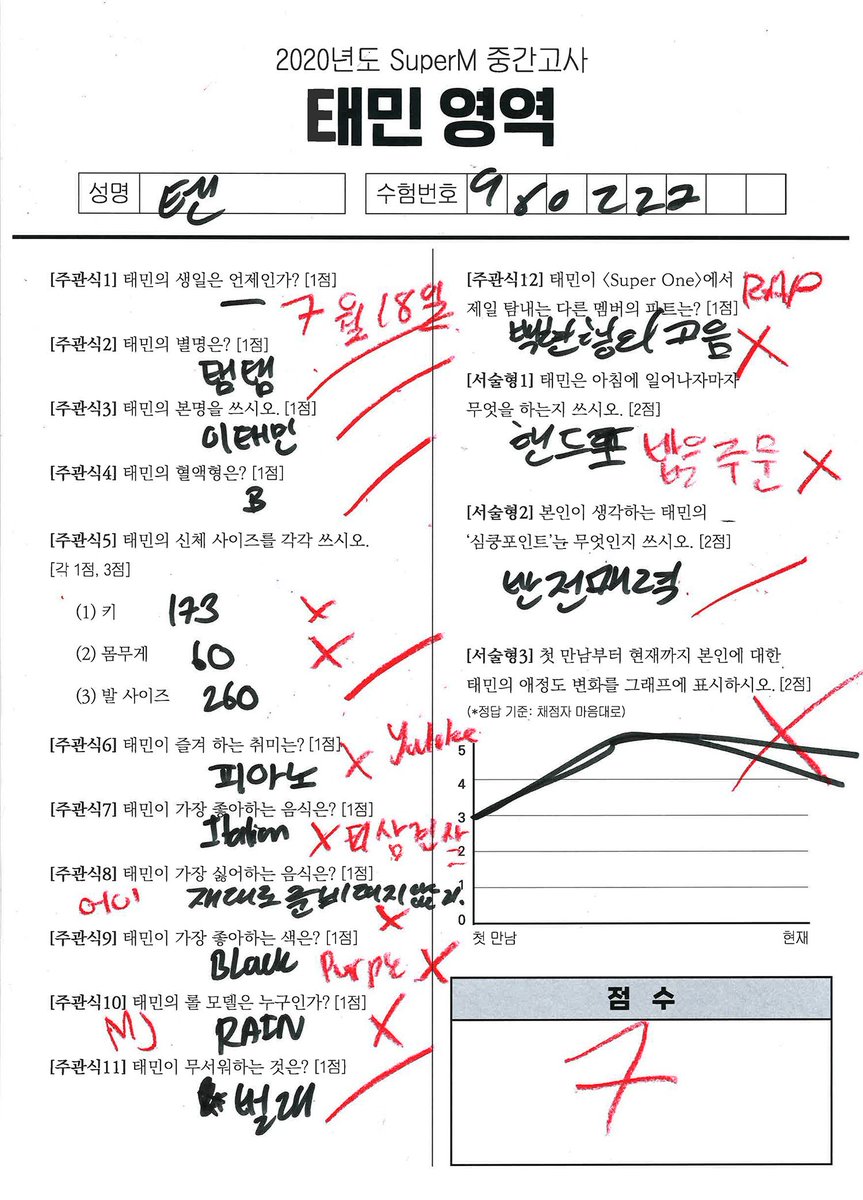 2020년도 SuperM 중간고사
태민 영역
성명 텐 수험번호 980222
[주관식1] 태민의 생일은 언제인가? [1점]
7월 18일
[주관식2] 태민의 별명은? [1점]
텀탬
[주관식3] 태민의 본명을 쓰시오. [1점]
이태민
[주관식4] 태민의 혈액형은? [1점]
B
[주관식5] 태민의 신체 사이즈를 각각 쓰시오.
[각 1점, 3점]
(1) 키 173
(2) 몸무게 60
(3) 발 사이즈 260
[주관식6] 태민이 즐겨 하는 취미는? [1점]
피아노
[주관식7] 태민이 가장 좋아하는 음식은? [1점]
[주관식8] 태민이 가장 싫어하는 음식은? [1점]
[주관식9] 태민이 가장 좋아하는 색은? [1점]
Black Purple
[주관식10] 태민의 롤 모델은 누구인가? [1점]
MJ RAIN
[주관식11] 태민이 무서워하는 것은? [1점]
벌래
[주관식12] 태민이 〈Super One〉에서
제일 탐내는 다른 멤버의 파트는? [1점]
RAP
백현형의 고음
[서술형1] 태민은 아침에 일어나자마자
무엇을 하는지 쓰시오. [2점]
핸드폰 밥을 주문
[서술형2] 본인이 생각하는 태민의
‘심쿵포인트’는 무엇인지 쓰시오. [2점]
반전매력
[서술형3] 첫 만남부터 현재까지 본인에 대한
태민의 애정도 변화를 그래프에 표시하시오. [2점]
(*정답 기준: 채점자 마음대로)
5
4
3
2
1
0
첫 만남 현재
점 수
7